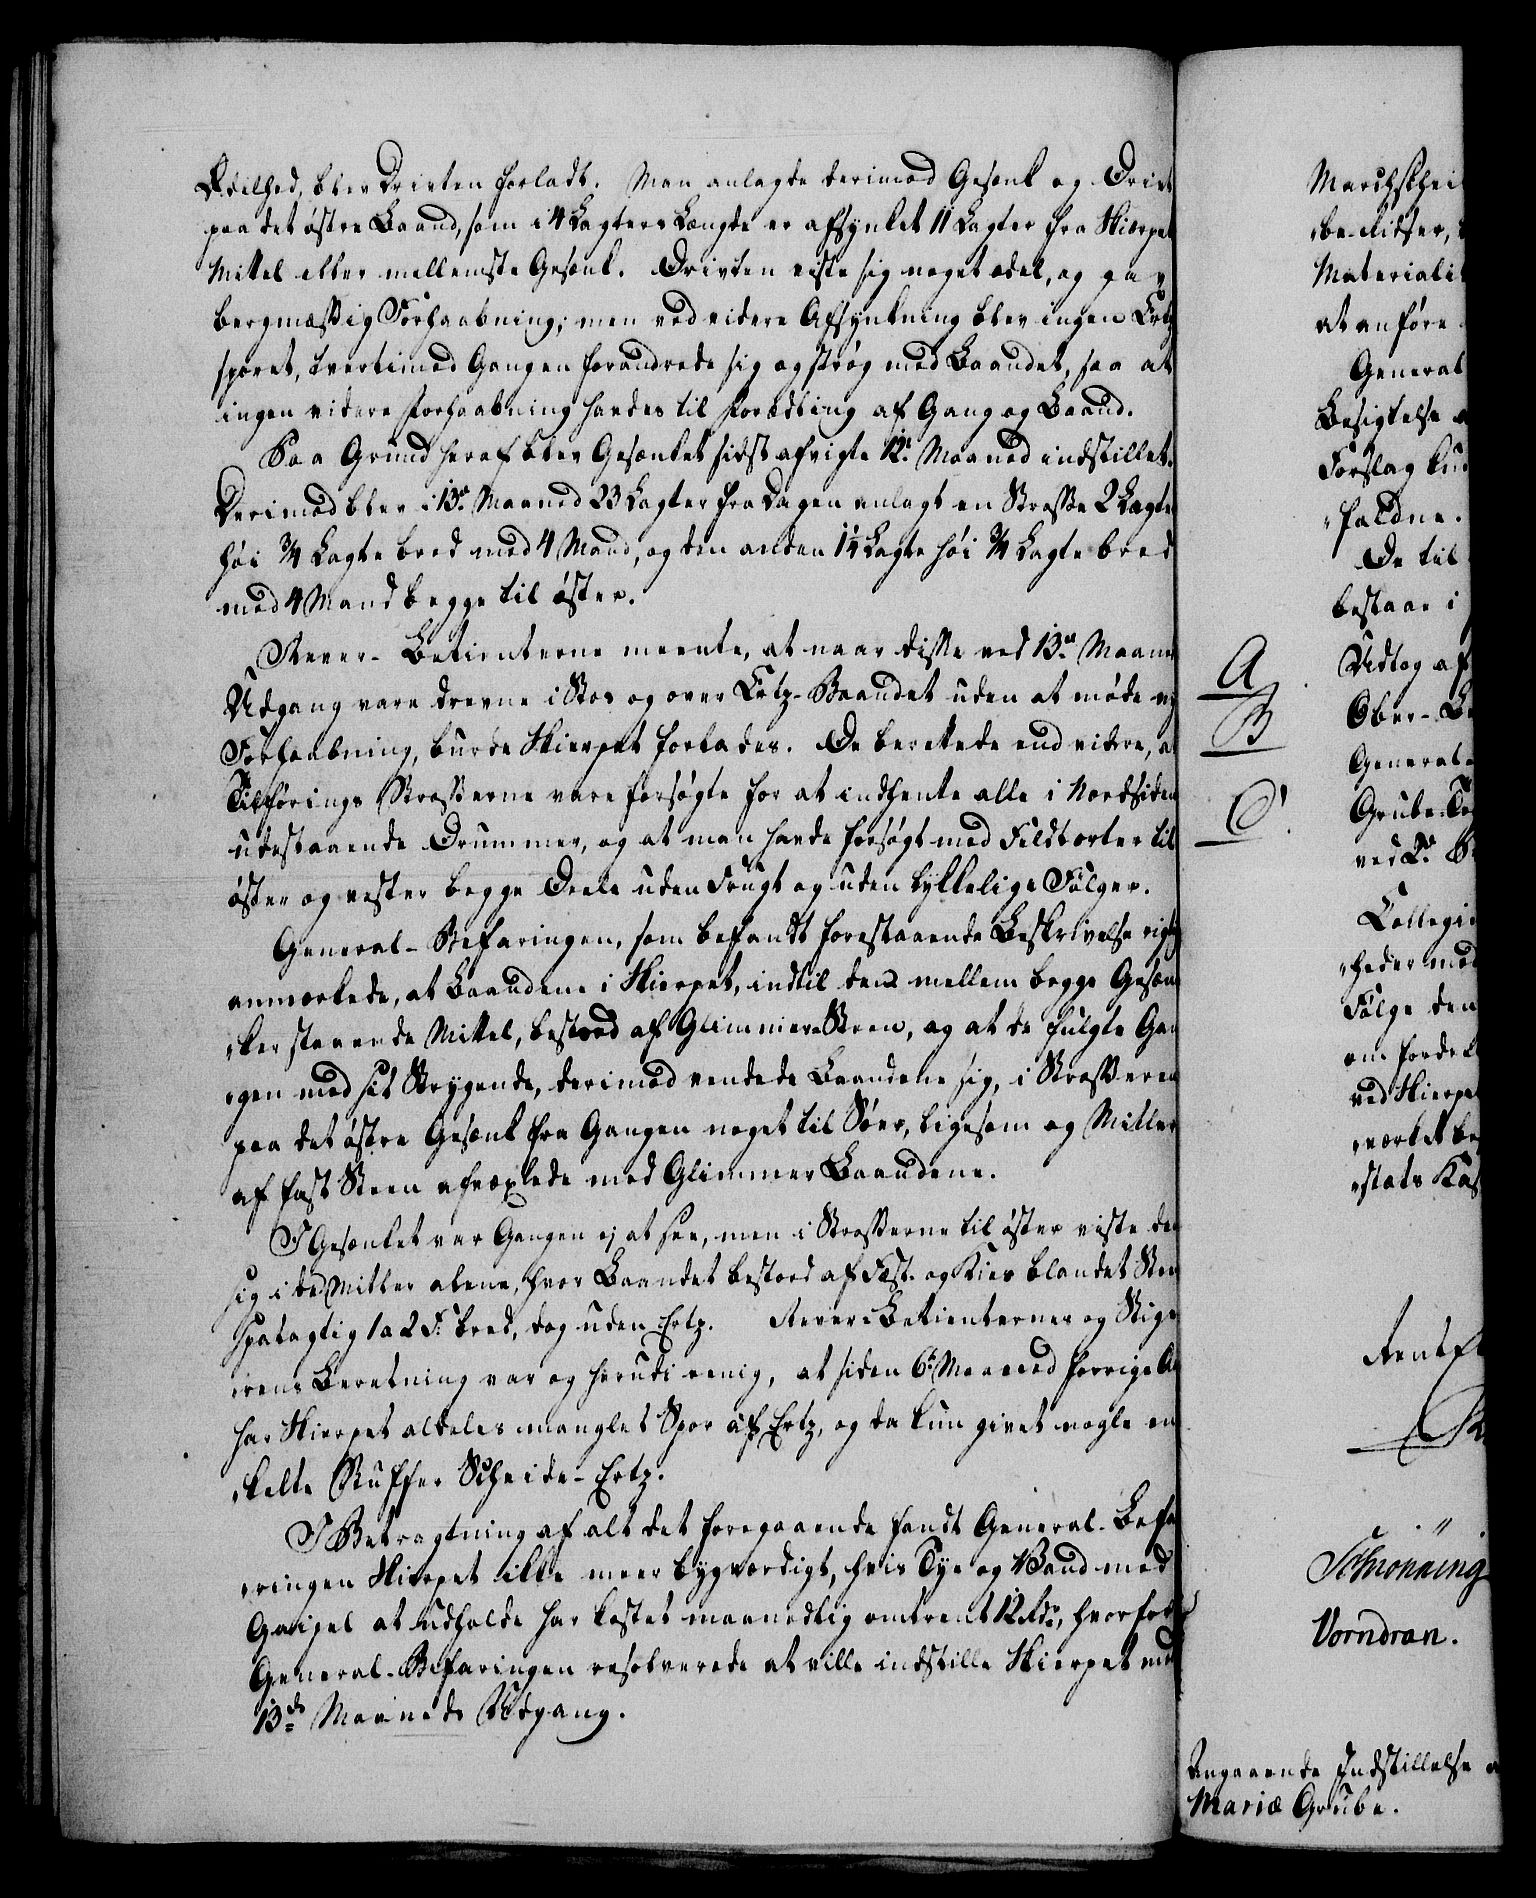 Ædelhed, blev Driften forladt. Man anlagde derimod Gesenk og Drivt
paa det østre Baand, som i 4 Lagters Længde er afsynket 11 Lagter fra Skierpet
Mittel eller mellemste Gesenk. Drivten viste sig noget ædel, og gav
bergmæssig Forhaabning; men ved videre Afsynkning blev ingen Ertz
sporet, tvertimod Gangen forandrede sig og strøg med Baandet, saa at
ingen videre Forhaabning havdes til Forædling af Gang og Baand.
Paa Grund heraf blev Gesenket sidst afvigte 12te Maaned indstillet.
Derimod blev i 13de Maaned 23 Lagter fra Dagen anlagt en Strosse 2 Lagter
høi 3/4 Lagte bred med 4 Mand, og den anden 1 1/4 Lagte høi 3/4 Lagte bred
med 4 Mand begge til øster.
Rever-Betienterne meente, at naar disse ved 13de Maaned
Udgang vare drevne i Stos og over Ertz-Baandet uden at møde ny
Forhaabning, burde Skierpet forlades. De berettede end videre, at
Tilførings Strosserne vare forsøgte for at indhente alle i Nordsiden
udestaaende Drummer, og at man havde forsøgt med Feldtorter til
øster og vester begge Deele uden Frugt og uden lykkelige Følger.
General-Befaringen, som befandt forestaaende Beskrivelse rigtig
anmærkede, at Baandene i Skierpet, indtil den mellem begge Gesen-
-ker staaende Mittel, bestod af Glimmer Steen, og at de fulgte Gan-
-gen med sit Strygende, derimod vendede Baandene sig, i Strosserne
paa det østre Gesenk fra Gangen noget til Søer, ligesom og Mitler
af fast Steen afvexlede med Glimmer Baandene.
I Gesenket var Gangen ej at see, men i Strosserne til øster viste den
sig i de Mitler alene, hvor Baandet bestoed af Fæst- og Kies blandet Steen
spatagtig 1 a 2 F. bred, dog uden Ertz. Rever-Betienternes og Stige-
-rens Beretning var og herudi eenig, at siden 6te Maaned forrige Aar
har Skierpet aldeles manglet Spor af Ertz, og da kun givet nogle en-
-kelte Puffer Scheide-Ertz.
I Betragtning af alt det foregaaende fandt General-Befa-
-ringen Skierpet ikke meer bygværdigt, hvis Tye og Vand med
Gaipel at udholde har kostet maanedlig omtrent 12 Rdr, hvorfor
General-Befaringen resolverede at ville indstille Skierpet med
13de Maaneds Udgang.
A
B
C.
Marchschei
Materiali
at anføre
General
Besigtelse
Forslag
-faldne.
De til
bestaae i
Udtog af
Ober-
General-
Grube-
Collegi
-heder med
Følge den
ved Skierpet
-stats Kas
Rentek
Schiønning
Vorndran.
Angaaende Indstillelse
Mariæ Grube.